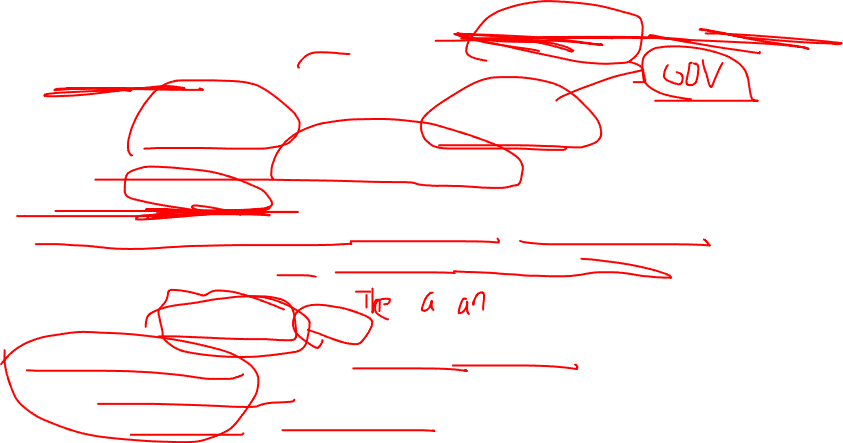 GOV
The a an